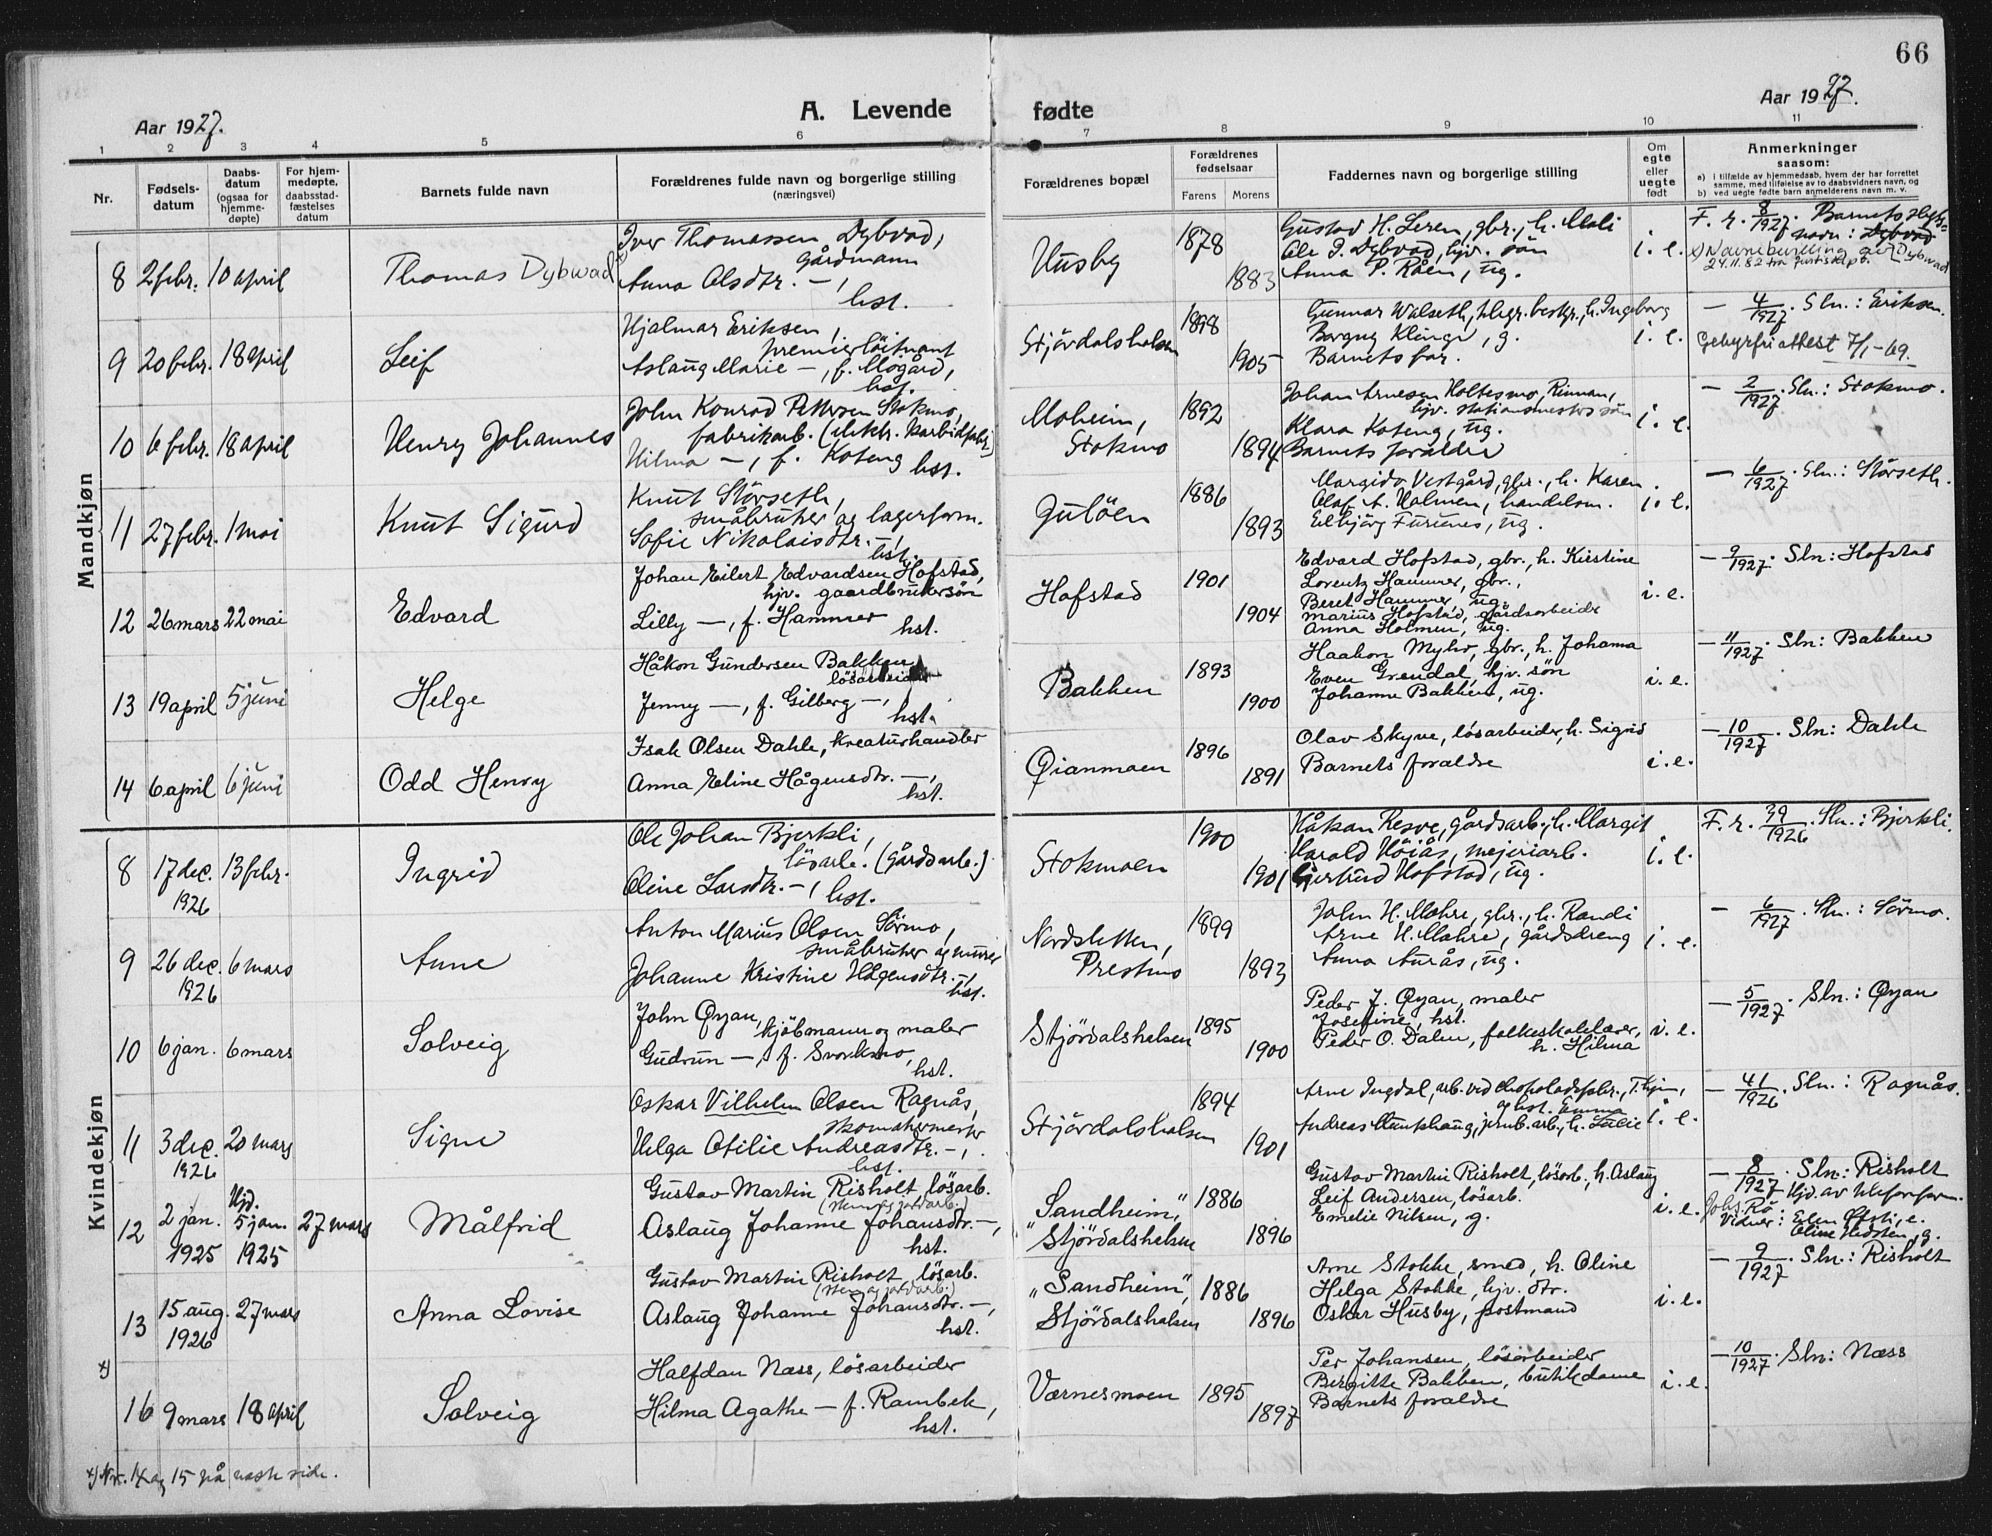 66
Aar 1927.
A. Levende fødte
Aar 1927.
1 2 3 4 5 6 7 8 9 10 11
Nr.
Fødsels-
datum
Daabs-
datum
(ogsaa for
hjemme-
døpte)
For hjem-
medøpte,
daabsstad-
fæstelses
datum
Barnets fulde navn
Forældrenes fulde navn og borgerlige stilling
(næringsvei)
Forældrenes bopæl
Forældrenes
fødselsaar
Farens Morens
Faddernes navn og borgerlige stilling
Om
egte
eller
uegte
født
Anmerkninger
saasom:
a) i tilfælde av hjemmedaab, hvem der har forrettet
samme, med tilføielse av to daabsvidners navn, og
b) ved uegte fødte barn anmelderens navn m. v.
Mandkjøn
8 2 febr. 10 april Thomas Dybwad
Iver Thomassen Dybvad,
gårdmann
Anna Olsdtr. —,
hst.
Husby 1878 1883
Gustav H. Leren, gbr., h. Mali
Ole I. Dybvad, hjv. søn
Anna P. Råen, ug.
i. e.
F. r. 8/1927. Barnets slegts-
navn: Dybvad
x) Navnebevilling av Dybwad
24.11.82 fra justisdep.
9 20 febr. 18 april Leif
Hjalmar Eriksen,
premierløitnant
Aslaug Marie —, f. Mogård,
hst.
Stjørdalshalsen 1898 1905
Gunnar Walseth, h. Ingeborg
Borgny Klinge, g.
Barnets far.
i. e.
— 4/1927. Sln.: Eriksen.
Gebyrfri attest 7/1-69.
10 6 febr. 18 april Henry Johannes
John Konrad Pettersen Stokmo,
fabrikarb. (elektr. karbidfabr.)
Hilma —, f. Koteng hst.
Moheim,
Stokmo 1892 1894
Johan Arnesen Holtesmo, Rinnan,
hjv. stationsmesters søn
Klara Koteng, ug.
Barnets forældre
i. e.
— 2/1927. Sln.: Stokmo.
11 27 febr. 1 mai Knut Sigurd
Knut Störseth,
småbruker og lagerform.
Sofie Nikolaisdtr. —,
hst.
Gulöen 1886 1893
Margido Vestgård, gbr., h. Karen.
Olaf A. Halmen, handelsm.
Eldbjörg Furunes, ug.
i. e.
— 6/1927. Sln.: Störseth.
12 26 mars 22 mai Edvard
Johan Eilert Edvardsen Hofstad,
hjv. gaardbrukersøn
Lilly —, f. Hammer
hst.
Hofstad 1901 1904
Edvard Hofstad, gbr., h. Kirstine
Lorentz Hammer, gbr.,
Beret Hammer, ug.
Marius Hofstad, gårdsarbeider
Anna Holmen, ug.
i. e.
— 9/1927. Sln: Hofstad
13 19 april 5 juni Helge
Håkon Gundersen Bakken
lösarbeider
Jenny —, f. Gilberg —,
hst.
Bakken 1893 1900
Haakon Myhr, gbr., h. Johanna
Even Grendal, hjv. søn
Johanne Bakken, ug.
i. e.
— 11/1927. Sln: Bakken
14 6 april 6 juni Odd Henry
Isak Olsen Dahle, kreaturhandler
Anna Eline Hågensdtr. —,
hst.
Øianmoen 1896 1891
Olav Skyve, lösarbeider, h. Sigrid
Barnets foraldre
i. e.
— 10/1927. Sln: Dahle
Kvindekjøn
8 17 dec. 1926 13 febr. Ingrid
Ole Johan Bjerkli,
lösarb. (gårdsarb.)
Oline Larsdtr. —,
hst.
Stokmoen 1900 1901
Håkan Resve, gårdsarb., h. Margit
Harald Höiås, meieriarb.
Gjertrud Hofstad, ug.
i. e.
F. r. 39/1926. Sln.: Bjerkli.
9 26 dec. 1926 6 mars Anne
Anton Marius Olsen Sörmo,
småbruker og murer
Johanne Kristine Hågensdtr. —,
hst.
Nordsletten,
Prestmo 1899 1893
John H. Mæhre, gbr., h. Randi
Arne H. Mæhre, gårdsdreng
Anna Aurås, ug.
i. e.
— 6/1927. Sln.: Sörmo.
10 6 jan. 6 mars Solveig
John Øyan,
kjöbmann og maler
Gudrun —, f. Svorkmo,
hst.
Stjördalshalsen 1895 1900
Peder J. Øyan, maler
Josefine, hst.
Peder O. Dalen, folkeskolelærer,
h. Hilma
i. e.
— 5/1927. Sln.: Øyan
11 3 dec. 1926 20 mars Signe
Oskar Vilhelm Olsen Ragnås,
skomakermester
Helga Otilie Andreasdtr. —,
hst.
Stjördalshalsen 1894 1901
Arne Ingdal, arb. ved chokoladefabr., T.hjm,
og hst. Emma
Andreas Munkhaug, jernb.arb., h. Lucie
i. e.
— 41/1926. Sln.: Ragnås.
12 2 jan. 1925 Hjd. 5 jan. 1925 27 mars Målfrid
Gustav Martin Risholt, lösarb.
(sten og jordarb.)
Aslaug Johanne Johansdtr. —,
hst.
"Sandheim",
Stjördalshalsen 1886 1896
Gustav Martin Risholt, lösarb., h. Aslaug
Leif Andersen, lösarb.
Emelie Nilsen, g.
i. e.
— 8/1927. Sln: Risholt
Hjd. av
Johs. Rö.
Vidner:
13 15 aug. 1926 27 mars Anna Lovise
Gustav Martin Risholt, lösarb.
(sten og jordarb.)
Aslaug Johanne Johansdtr. —,
hst.
"Sandheim",
Stjördalshalsen 1886 1896
Arne Stokke, smed, h. Oline
Helga Stokke, hjv. dtr.
Oskar Husby, postmand
i. e.
— 9/1927. Sln: Risholt
x)
16 9 mars 18 april Solveig
Halfdan Næss, lösarbeider
Hilma Agathe — f. Rambek,
hst.
Værnesmoen 1895 1897
Per Johansen, lösarbeider
Birgitte Bakken, butikdame
Barnets foraldre
i. e.
— 10/1927. Sln: Næss
x) Nr. 14 og 15 på næste side.